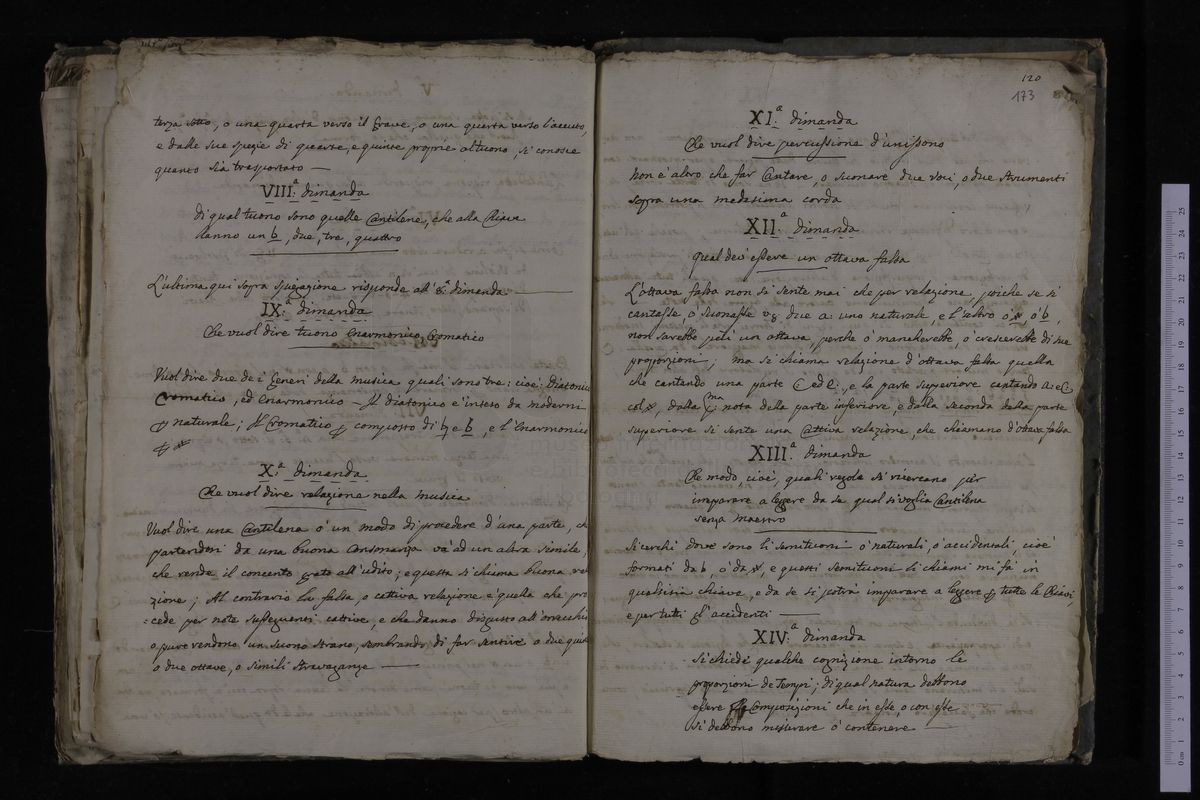 terza sotto, o una quarta verso il grave, o una quarta verso l'accuto,
e dalle sue spezie di quarte, e quinte proprie al tuono, si conosce
quanto sia trasportato —
VIII.ª dimanda
Di qual tuono sono quelle Cantilene, che alla Chiave
hanno un b, due, tre, quattro
L'ultima qui sopra spiegazione risponde all' 8.ª dimanda.
IX.ª dimanda
Che vuol dire tuono Enarmonico, Cromatico
Vuol dire due de i Generi della musica quali sono tre: cioè: Diatonico
Cromatico, ed Enarmonico — Il diatonico e' inteso da moderni
p naturale; Il Cromatico p composto di ♮ e b, e l'Enarmonico
p
X.ª dimanda
Che vuol dire relazione nella musica
Vuol dire una Cantilena o' un modo di procedere d'una parte, ch
partendosi da una buona Consonanza va' ad un altra simile,
che rende il concento grato all'udito; e questa si chiama buona re
zione; Al contrario la falsa, o cattiva relazione e' quella che pro
=cede per note susseguenti cattive, e che danno disgusto all'orecchio
o pure rendono un suono strano, sembrando di far sentire o due quin
o due ottave, o simili stravaganze —
120
173
XI.ª dimanda
Che vuol dire percussione d'unissono
Non e' altro che far Cantare, o suonare due voci, o due strumenti
sopra una medesima corda
XII.ª dimanda
qual dev' essere un ottava falsa
L'ottava falsa non si sente mai che per relazione, poiche se si
cantasse, o suonasse due a: uno naturale, e l'altro o' #, o' b,
non sarebbe più un ottava, perche o' mancherebbe, o' crescerebbe di sue
proporzioni; ma si chiama relazione d'ottava falsa quella
che cantando una parte C ed E, e la parte superiore cantando A: e C:
col #, dalla p.ma nota della parte inferiore, e dalla seconda della parte
superiore si sente una Cattiva relazione, che chiamano d'ottava falsa
XIII.ª dimanda
Che modo, cioè, quali regole si ricercano per
imparare a leggere da se qual sivoglia Cantilena
senza maestro
Si cerchi dove sono li semituoni o' naturali, o' accidentali, cioè
formati da b, o' da #, e questi semituoni li chiami mi fa in
qualsisia chiave, e da se si potrà imparare a leggere p tutte le Chiavi,
e per tutti gl'accidenti —
XIV.ª dimanda
Si chiede qualche cognizione intorno le
proporzioni de Tempi; di qual natura debbono
essere le Composizioni che in esse, o con esse
si debbono missurare o' contenere —